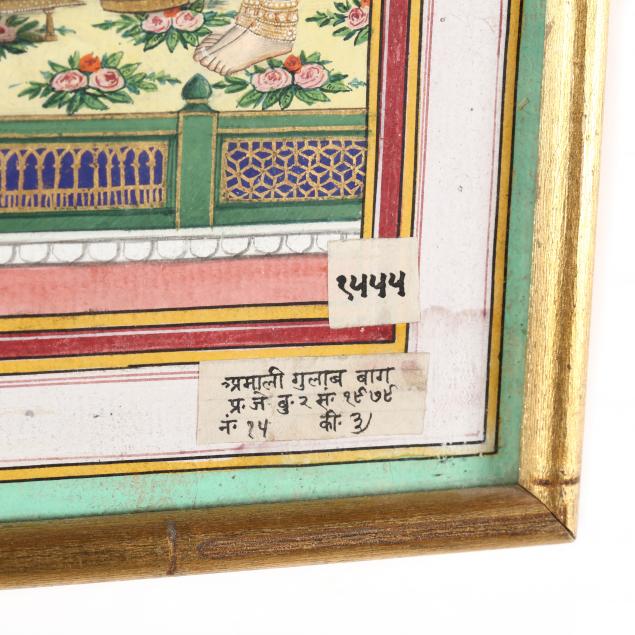 १५५५
अमाली गुलाब बाग
प्र. जे बु. २ सं. १९७९
नं. १५ की. ३)